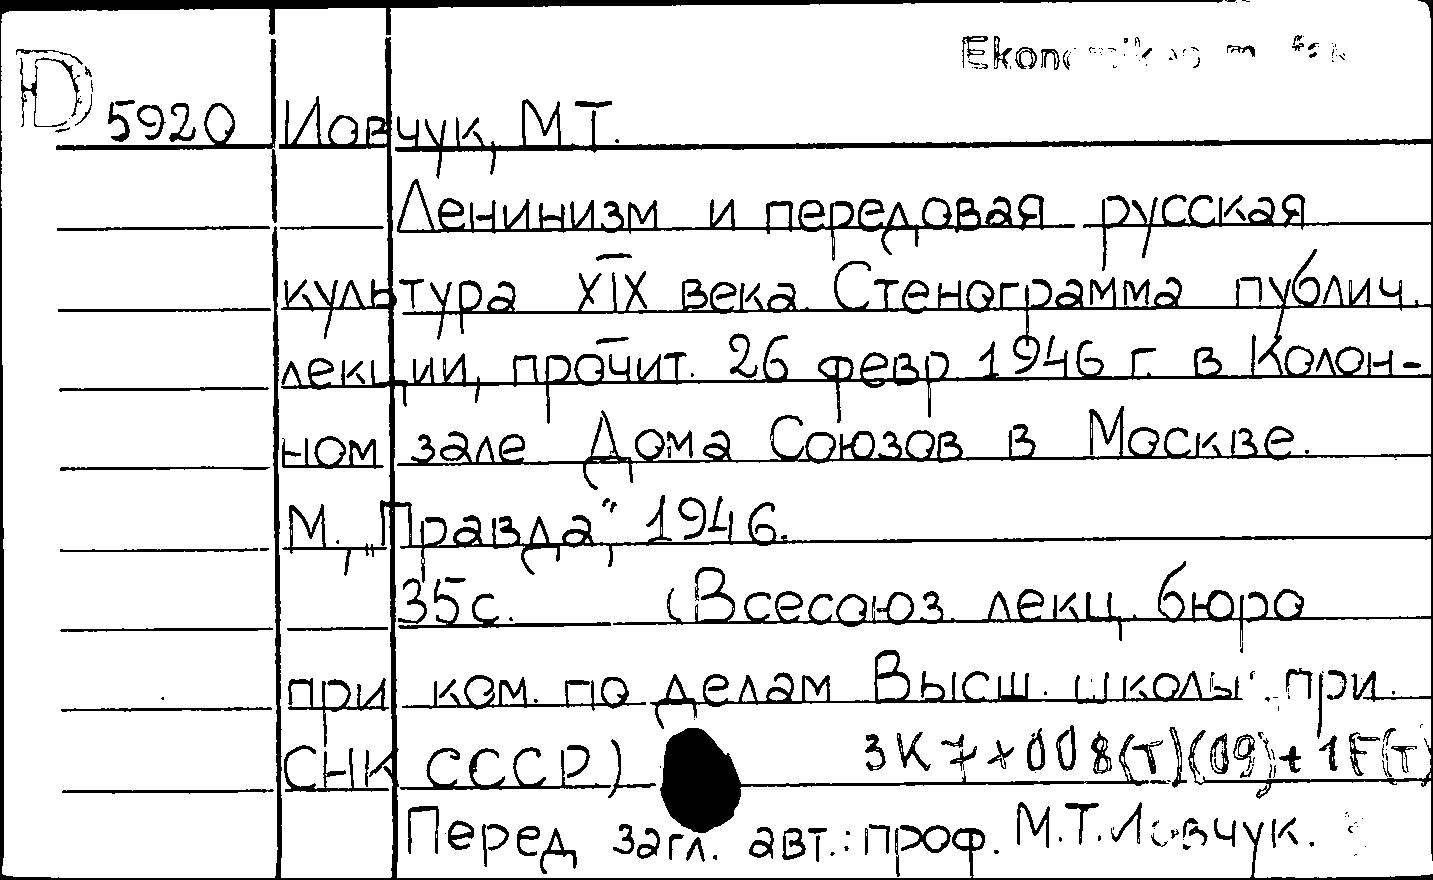 D 5920 Иовчук, М.Т.
Ленинизм и передовая русская
культура XIX века. Стенограмма публич.
лекции, прочит. 26 февр 1946 г. в Колон-
ном зале Дома Союзов в Москве.
М., „Правда", 1946.
35с. (Всесоюз. лекц. бюро
при ком. по делам Высш. школы при
СНК СССР) 3К7+008(Т)(09)+1F(Т)
Перед загл. авт.: проф. М.Т.Иовчук.